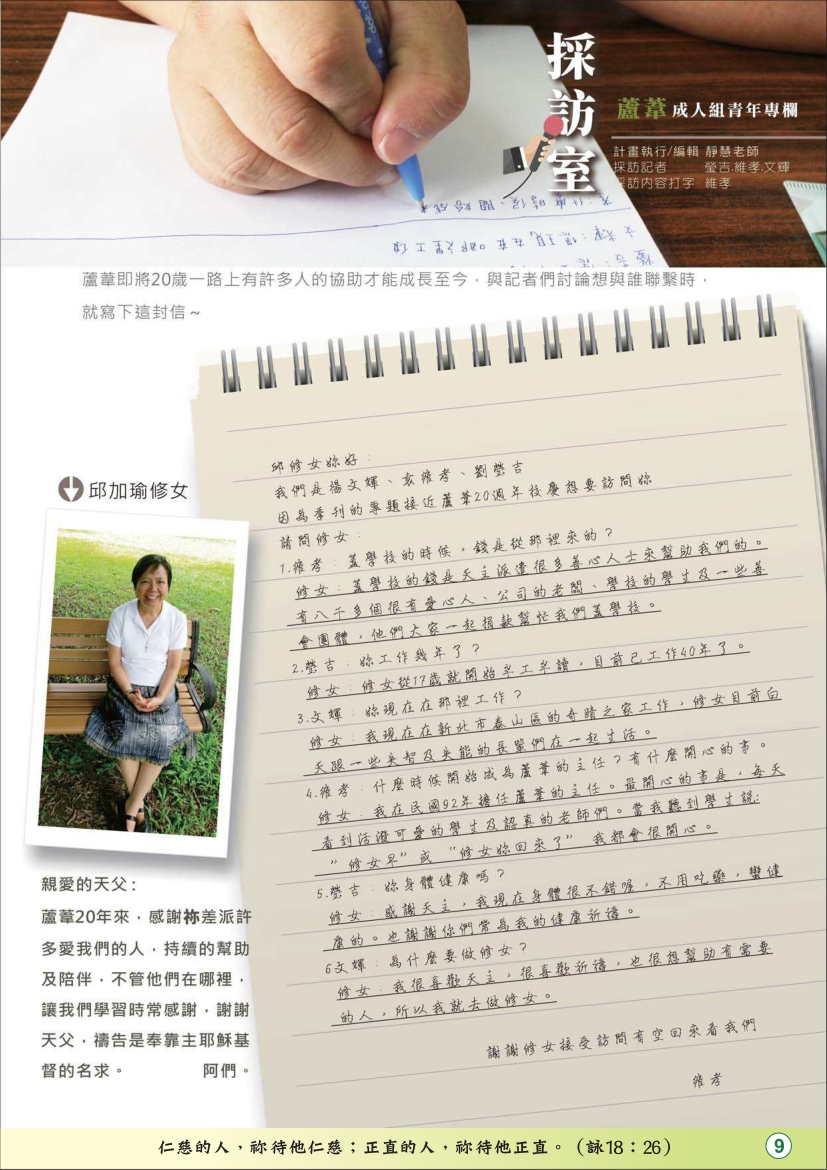 採訪室
蘆葦 成人組青年專欄
計畫執行/編輯 靜慧老師
採訪記者 瑩吉.維孝.文輝
採訪內容打字 維孝
蘆葦即將20歲一路上有許多人的協助才能成長至今，與記者們討論想與誰聯繫時，
就寫下這封信～
邱加瑜修女
邱修女妳好：
我們是楊文輝、袁維孝、劉瑩吉
因為季刊的專題接近蘆葦20週年校慶想要訪問妳
請問修女：
1.維孝：蓋學校的時候，錢是從那裡來的？
修女：蓋學校的錢是天主派遣很多善心人士來幫助我們的。
有八千多個很有愛心人、公司的老闆、學校的學生及一些善
會團體，他們大家一起捐款幫忙我們蓋學校。
2.瑩吉：妳工作幾年了？
修女：修女從17歲就開始半工半讀，目前已工作40年了。
3.文輝：妳現在在那裡工作？
修女：我現在在新北市泰山區的奇蹟之家工作，修女目前白
天跟一些失智及失能的長輩們在一起生活。
4.維孝：什麼時候開始成為蘆葦的主任？有什麼開心的事。
修女：我在民國92年擔任蘆葦的主任。最開心的事是，每天
看到活潑可愛的學生及認真的老師們。當我聽到學生說:
”修女早”或“修女妳回來了” 我都會很開心。
5.瑩吉：妳身體健康嗎？
修女：感謝天主，我現在身體很不錯喔，不用吃藥，蠻健
康的。也謝謝你們常為我的健康祈禱。
6文輝：為什麼要做修女？
修女：我很喜歡天主，很喜歡祈禱，也很想幫助有需要
的人，所以我就去做修女。
謝謝修女接受訪問有空回來看我們
維孝
親愛的天父：
蘆葦20年來，感謝祢差派許
多愛我們的人，持續的幫助
及陪伴，不管他們在哪裡，
讓我們學習時常感謝，謝謝
天父，禱告是奉靠主耶穌基
督的名求。 阿們。
仁慈的人，祢待他仁慈；正直的人，祢待他正直。（詠18：26）
9